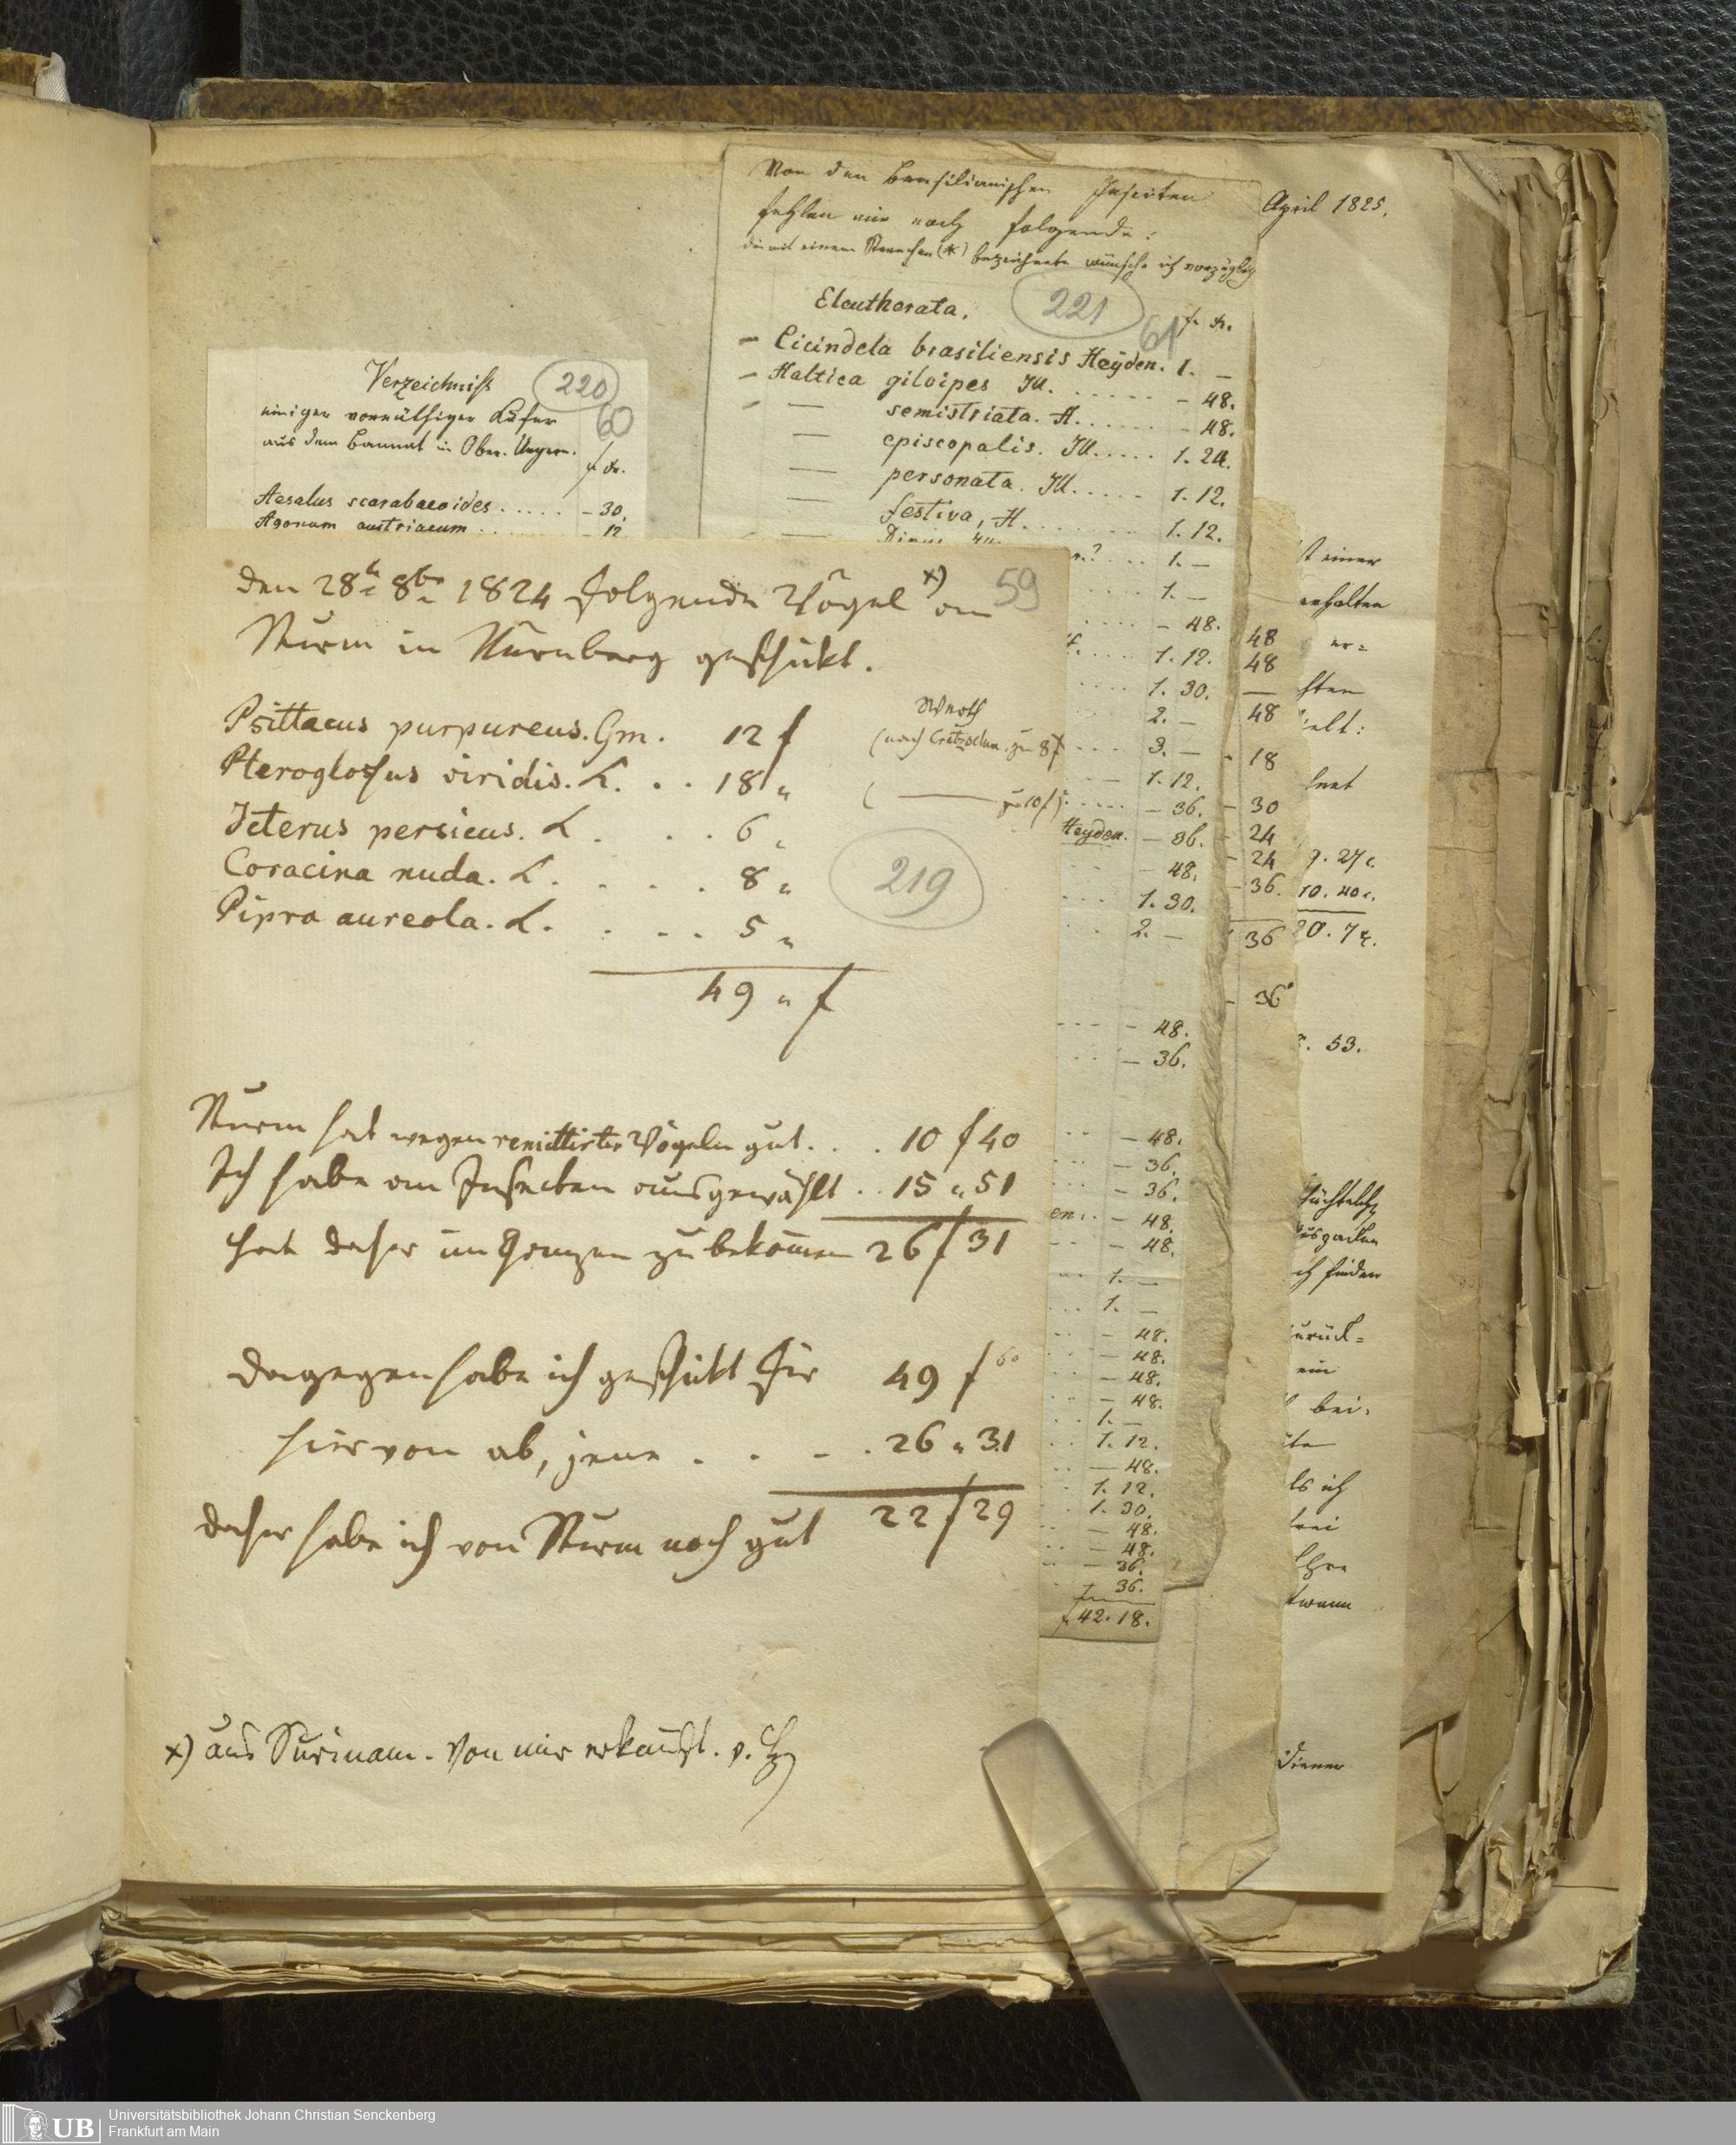 Von den brasilianischen Insecten
fehlen mir noch folgende:
die mit einem Sternchen (*) bezeichnete wünsche ich vorzüglich
Eleutherata. 221 f. kr.
61
– Cicindela brasiliensis Heyden. 1. –
– Haltica gilvipes Ill. . . . . . – 48.
– — semistriata. H. . . . . . – 48.
— episcopalis. Ill. . . . . 1. 24.
— personata. Ill. . . . . 1. 12.
— festiva, H. . . . . . 1. 12.
April 1825.
Verzeichniss 220
einiger vorräthiger Käfer 60
aus dem Bannat in Ober. Ungern.
f. kr.
Aesalus scarabaeoides . . . . . – 30.
Agonum austriacum . . . – 12
den 28t 8br 1824 folgende Vögel x) an 59
Sturm in Nürnberg geschickt.
Psittacus purpureus. Gm. 12 f
Werth
(nach Cretzschm. zu 8 f
Pteroglossus viridis. L. . . 18 "
( ——— zu 10 f)
Icterus persicus. L . . . . 6 "
Coracina nuda. L. . . . . 8 "
219
Pipra aureola. L. . . . . 5 "
49 " f
Sturm hat wegen remittirter Vögeln gut . . . 10 f 40
Ich habe an Insecten ausgewählt . . 15 " 51
hat daher im Ganzen zu bekommen 26 f 31
dagegen habe ich geschickt für 49 f 60
hiervon ab, jene . . . . 26 " 31
daher habe ich von Sturm noch gut 22 f 29
x) aus Surinam. Von mir erkauft. v. Hg
n.? . . . 1. –
. . . . 1. –
. . . . – 48.
. . . . 1. 12.
. . . . 1. 30.
2. –
. . . . 3. –
– 1. 12.
. . . . – 36.
Heyden. – 36.
– 48.
. . . 1. 30.
. . 2. –
. . . – 48.
. . . – 36.
. . – 48.
. . . – 36.
. . . – 36.
en. . – 48.
. . – 48.
. . 1. –
. . . 1. –
. . – 48.
. . – 48.
. . – 48.
. . – 48.
. . 1. –
. . 1. 12.
. . – 48.
. 1. 12.
. 1. 30.
. . – 48.
. . – 48.
. . – 36.
36.
f. 42. 18.
48
48
—
48
– 18
– 30
– 24
– 24
– 36.
36
– 36
st einer
erhalten
er=
hten
elt:
9. 27 c.
10. 40 c.
20. 7 c.
. 53.
ch finden
zurück=
ein
bei.
ls ich
Diener
UB
Universitätsbibliothek Johann Christian Senckenberg
Frankfurt am Main